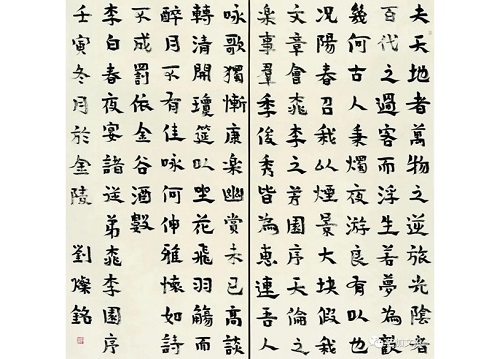 夫天地者萬物之逆旅光陰者
百代之過客而浮生若夢為歡
幾何古人秉燭夜游良有以也
況陽春召我以煙景大塊假我
文章會桃李之芳園序天倫之
樂事羣季俊秀皆為惠連吾人
詠歌獨慚康樂幽賞未已高談
轉清開瓊筵以坐花飛羽觴而
醉月不有佳詠何伸雅懷如詩
不成罰依金谷酒數
李白春夜宴諸從弟桃李園序
壬寅冬月於金陵 劉燦銘